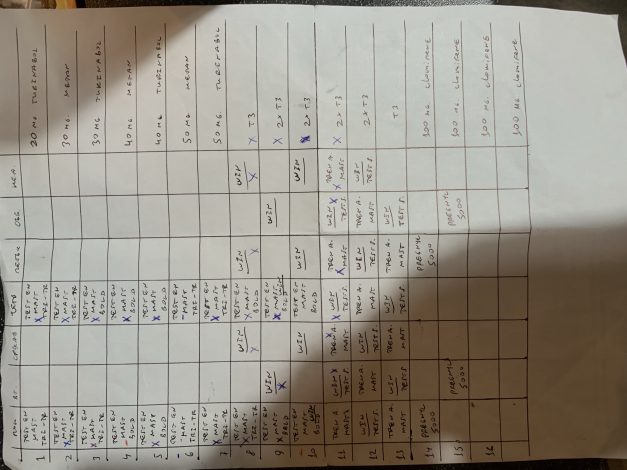 ПОН ВТ ЧЕТВ ПЕТЪК СЪБ НЕД
1 TEST EN MAST TRI-TR TEST EN MAST TRI-TR 20 MG TURINABOL
2 TEST EN MAST TRI-TR TEST EN MAST TRI-TR 30 MG METAN
3 TEST EN MAST TRI-TR TEST EN MAST BOLD 30 MG TURINABOL
4 TEST EN MAST BOLD TEST EN MAST BOLD 40 MG METAN
5 TEST EN MAST BOLD TEST EN MAST BOLD 40 MG TURINABOL
6 TEST EN MAST TRI-TR TEST EN MAST TRI-TR 50 MG METAN
7 TEST EN MAST TRI-TR TEST EN MAST TRI-TR 50 MG TURINABOL
8 TEST EN MAST BOLD WIN TEST EN MAST BOLD WIN WIN T3
9 TEST EN MAST BOLD WIN TEST EN MAST BOLD WIN 2xT3
10 TEST EN MAST BOLD WIN TEST EN MAST BOLD WIN WIN 2xT3
11 TREN A. MAST WIN TEST P. TREN A. MAST WIN TEST P. TREN A. MAST WIN TEST P. TREN A. MAST 2xT3
12 WIN TEST P. TREN A. MAST WIN TEST P. TREN A. MAST WIN TEST P. TREN A. MAST WIN TEST P. 2xT3
13 TREN A. MAST WIN TEST P. TREN A. MAST WIN TEST P. TREN A. MAST WIN TEST P. T3
14 PREGNYL 5000 PREGNYL 5000 100 MG clomifene
15 PREGNYL 5000 PREGNYL 5000 100 MG clomifene
16 100 MG clomifene
100 MG clomifene